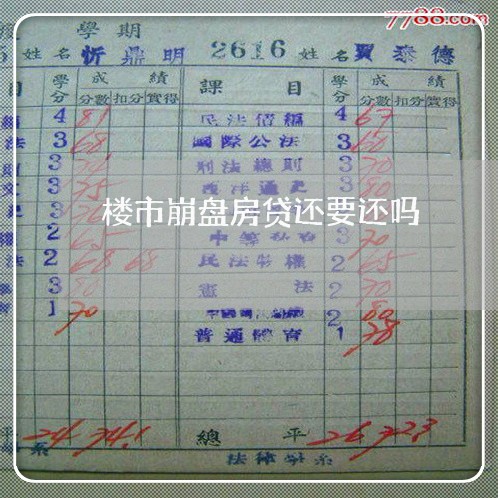 7788.com
學期
姓名 忻鼎明 2616 姓名 賈泰德
目 學分 成績 課目 學分 成績
分數 扣分 實得 分數 扣分 實得
4 81 民法債編 4 67
法 3 68 國際公法 3 60
3 刑法總則 3 70
3 75 西洋通史 3 80
楼市崩盘房贷还要还吗
2 65 3 70
法 2 68 68 民法物權 2 65
3 80 憲法 2 70
1 70 2 80
普通體育 1 78
平 24 74.1 總平 26 72.3
系 法律學系